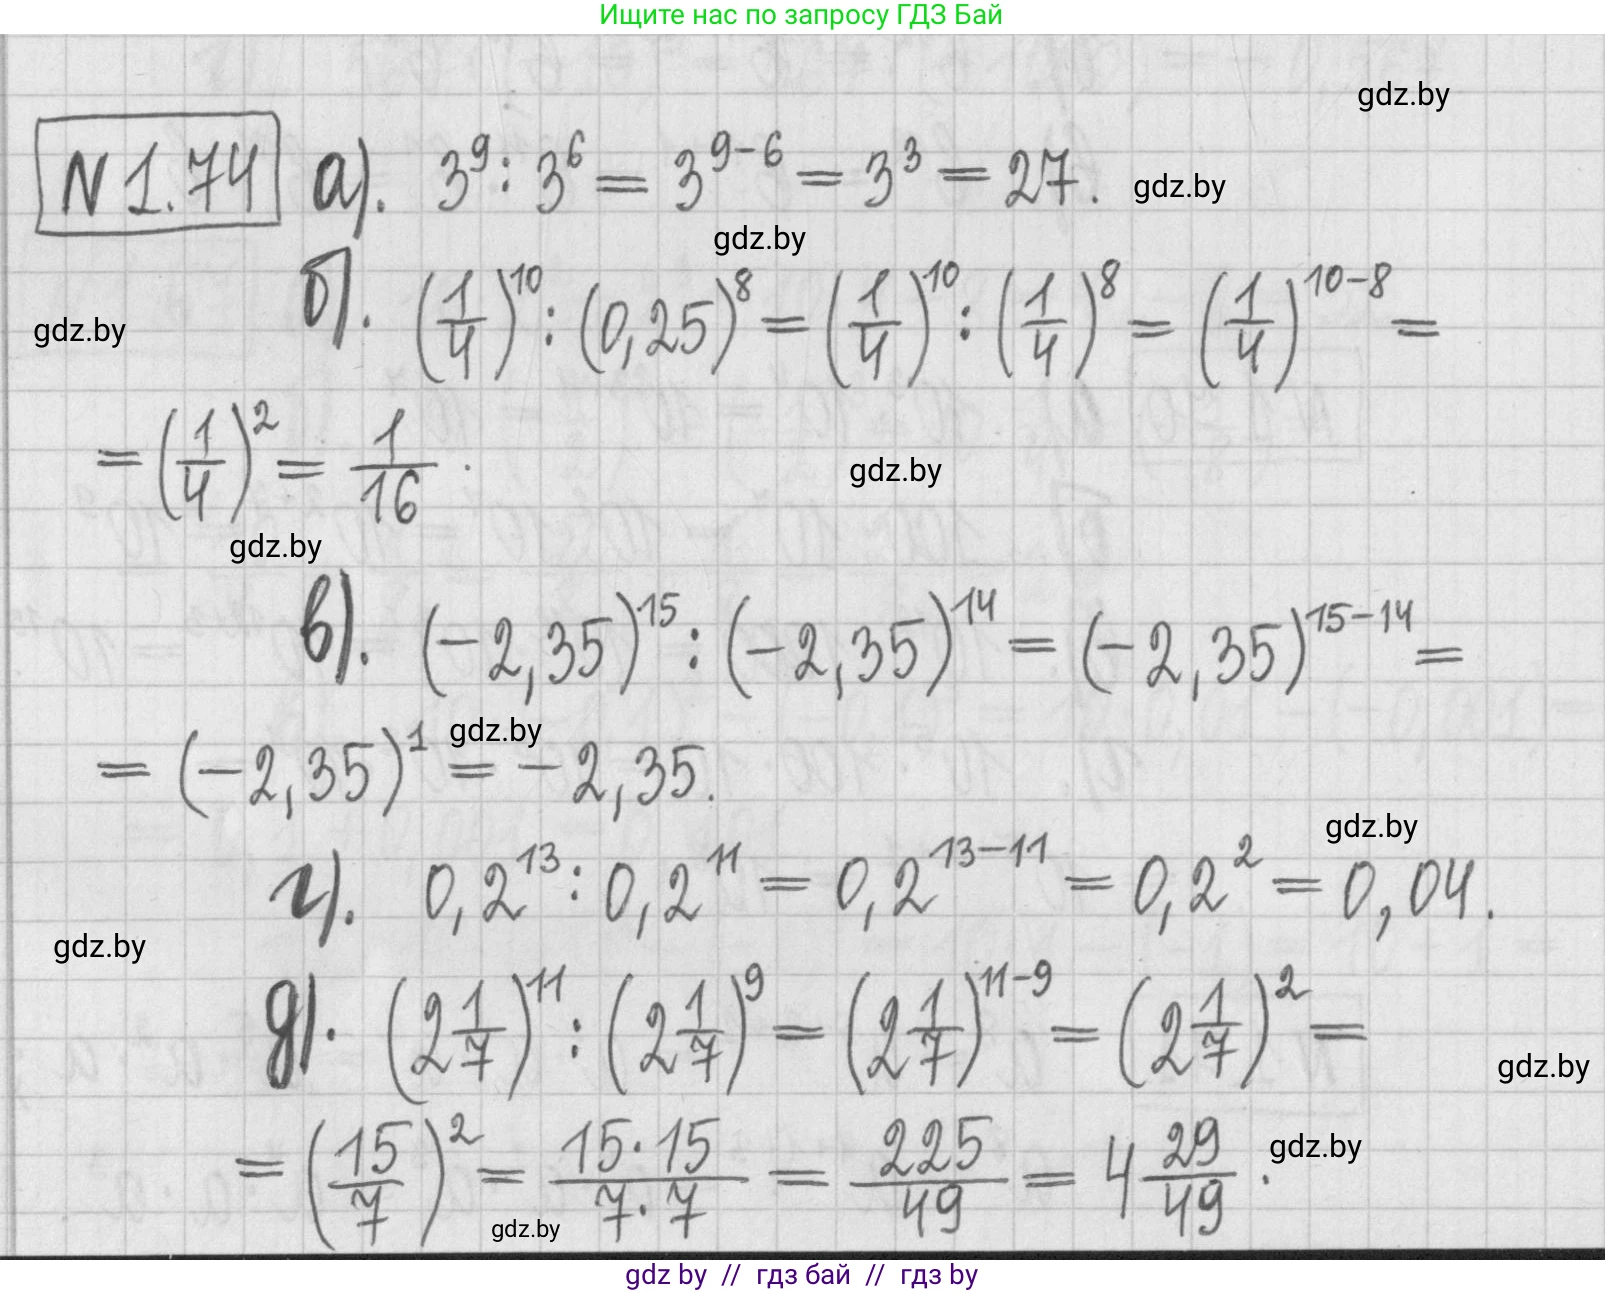 Ищите нас по запросу ГДЗ Бай
gdz.by
N 1.74 а). 3^9 : 3^6 = 3^{9-6} = 3^3 = 27. gdz.by
gdz.by
б). (1/4)^{10} : (0,25)^8 = (1/4)^{10} : (1/4)^8 = (1/4)^{10-8} =
gdz.by
= (1/4)^2 = 1/16 .
gdz.by
gdz.by
в). (-2,35)^{15} : (-2,35)^{14} = (-2,35)^{15-14} =
= (-2,35)^1 = -2,35.
gdz.by
gdz.by
г). 0,2^{13} : 0,2^{11} = 0,2^{13-11} = 0,2^2 = 0,04.
gdz.by
д). (2 1/7)^{11} : (2 1/7)^9 = (2 1/7)^{11-9} = (2 1/7)^2 =
gdz.by
= (15/7)^2 = 15·15/7·7 = 225/49 = 4 29/49 . gdz.by
gdz.by
gdz by // гдз бай // гдз by